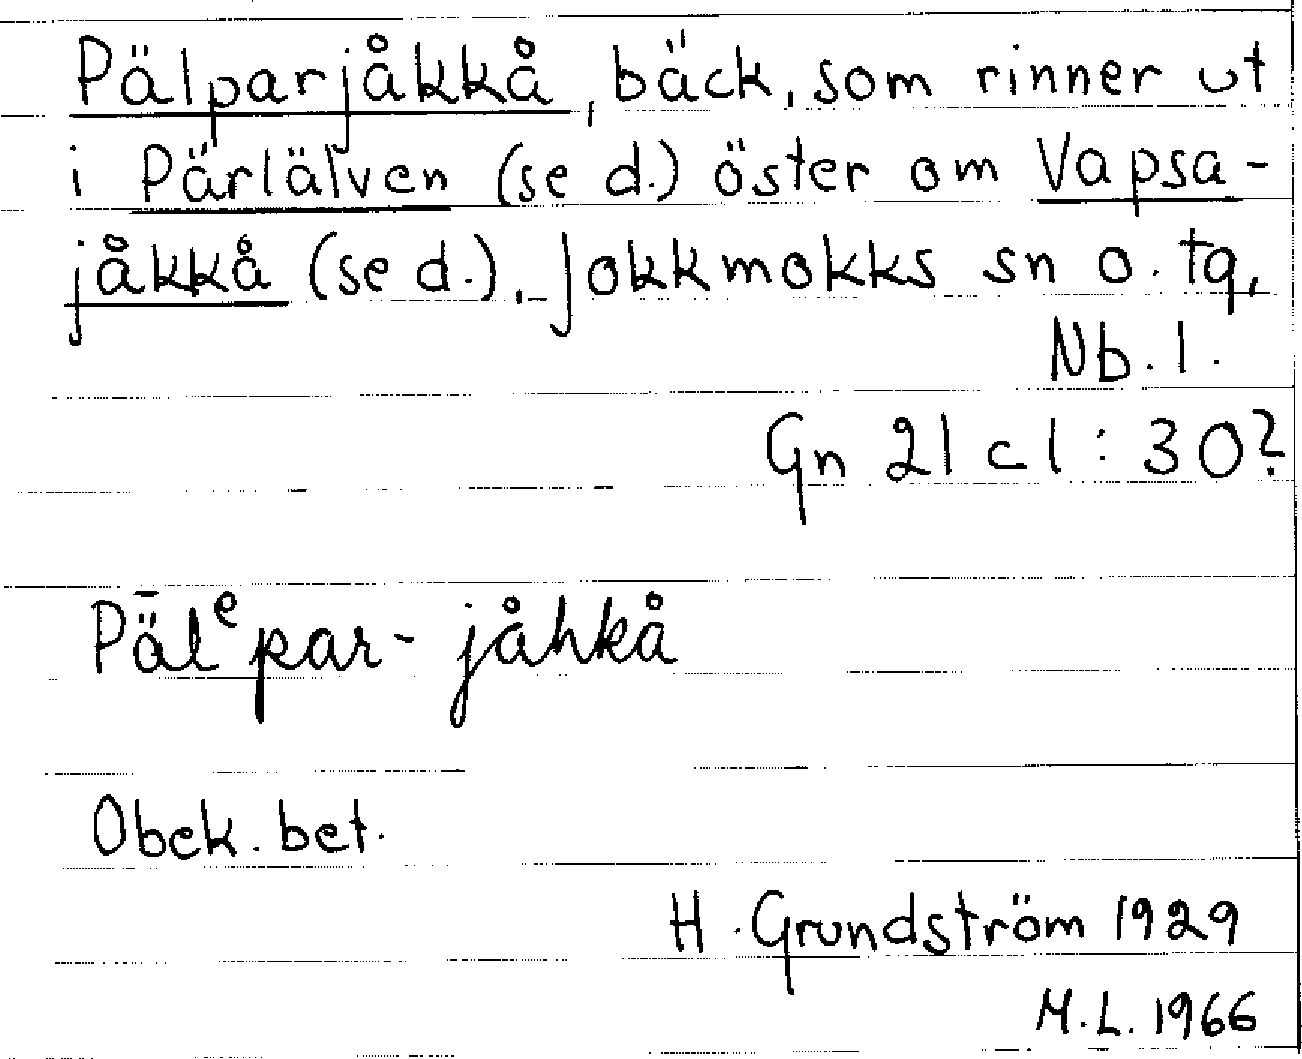 Pälparjåkkå, bäck, som rinner ut
i Pärlälven (se d.) öster om Vapsa-
jåkkå (se d.), Jokkmokks sn o. tg,
Nb. l.
Gn 21 c 1 : 30?
Pǟlᵉpar-jåhkå
Obek. bet.
H. Grundström 1929
M.L. 1966